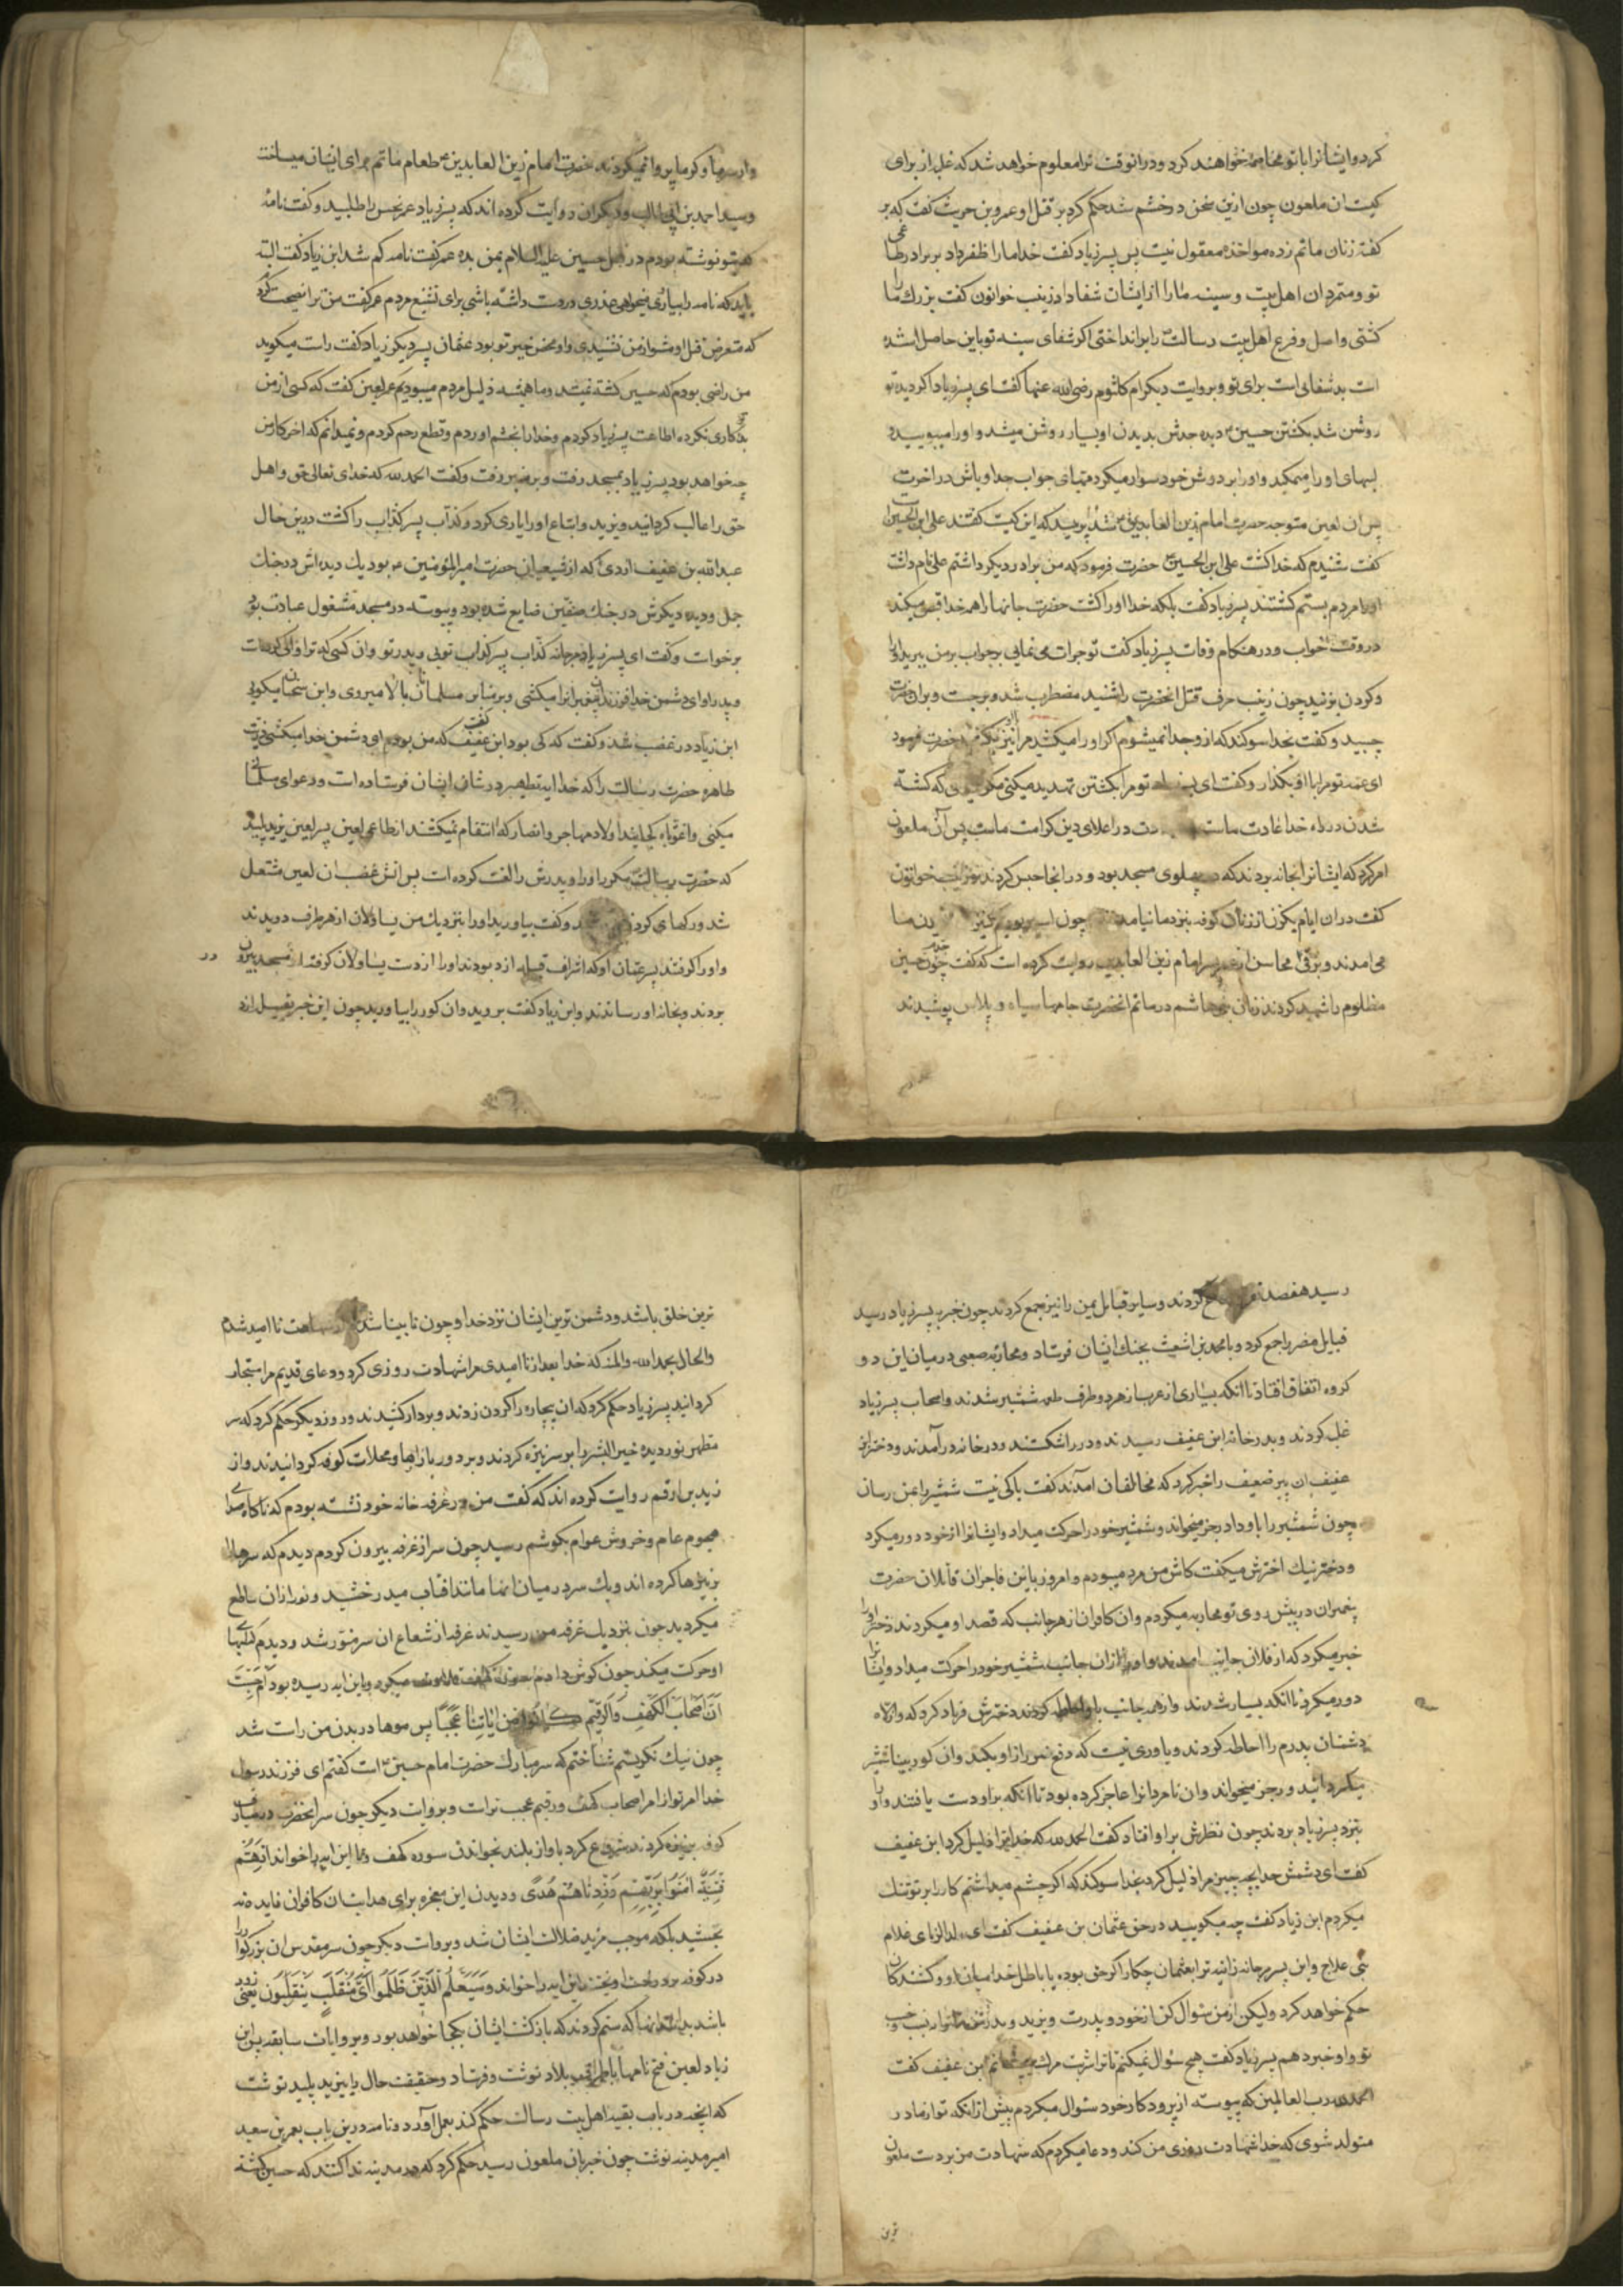 کرد و ایشانرا با تو مخاصمه خواهند کرد و درانوقت ترا معلوم خواهد شد که غلبه از برای
کیست ان ملعون چون ازین سخن در خشم شد حکم کرد بر قتل او عمرو بن حریث گفت که بر
گفته زنان ماتم زده مواخذه معقول نیست پس پسر زیاد گفت خدا ما را ظفر داد بر برادر طاغی
تو و متمردان اهل بیت و سینه ما را از ایشان شفا داد زینب خواتون گفت بزرک ما را
کشتی و اصل و فرع اهل بیت رسالت را برانداختی اکر شفای سینه تو باین حاصل شده
است بد شفائی است برای تو و بروایت دیکر ام کلثوم رضی الله عنها گفت ای پسر زیاد اکر دیده تو
روشن شد بکشتن حسین دیده جدش بدیدن او بسیار روشن میشد و او را میبوسید و
لبهای او را میمکید و او را بر دوش خود سوار میکرد مهیای جواب جد او باش در اخرت
پس ان لعین متوجه حضرت امام زین العابدین شد پرسید که این کیست گفتند علی ابن الحسین
گفت شنیدم که خدا کشت علی ابن الحسین حضرت فرمود که من برادر دیکر داشتم علی نام داشت
او را مردم بستم کشتند پسر زیاد گفت بلکه خدا او را کشت حضرت جانها را همه خدا قبض میکند
در وقت خواب و در هنکام وفات پسر زیاد گفت تو جرات می نمائی بر جواب من ببرید او را
و کردن بزنید چون زینب حرف قتل انحضرت را شنید مضطرب شد و برجست و بران حضرت
چسبید و گفت بخدا سوکند که از و جدا نمیشوم اکر او را میکشید مرا نیز بکشید حضرت فرمود
ای عمه تو مرا با او بکذار و گفت ای پسر تو مرا بکشتن تهدید میکنی مکر که کشته
شدن در راه خدا عادت ماست در اعلای دین کرامت ماست پس آن ملعون
امر کرد که ایشانرا بخانه بردند که در پهلوی مسجد بود و در انجا حبس کردند زینب خواتون
گفت دران ایام یکزن از زنان کوفه بنزد ما نیامد چون اسیر بودیم کنیز ما
می امدند و برقی محاسن از امام زین العابدین روایت کرده است که گفت چون جدم حسین
مظلوم را شهید کردند زنان بنی هاشم در ماتم انحضرت جامها سیاه و پلاس پوشیدند
و از سرما و کرما پروا نمیکردند حضرت امام زین العابدین طعام ماتم برای ایشان میساخت
و سید احمد بن ابی طالب و دیکران روایت کرده اند که پسر زیاد عمر نحس را طلبید و گفت نامه
که بتو نوشته بودم در قتل حسین علیه السلام بمن بده عمر گفت نامه کم شد ابن زیاد گفت البته
باید که نامه را بیاری میخواهی عذری در دست داشته باشی برای تشنیع مردم عمر گفت من ترا نصیحت کردم
که متعرض قتل او مشو از من نشنیدی و او محض خیر تو بود عثمان پسر دیکر زیاد گفت راست میکوید
من راضی بودم که حسین کشته نمیشد و ما همیشه ذلیل مردم میبودیم عمر لعین گفت که کسی از من
بدکاری نکرده اطاعت پسر زیاد کردم و خدا را بخشم اوردم و قطع رحم کردم و نمیدانم که اخر کار من
چه خواهد بود پسر زیاد بمسجد رفت و بر منبر رفت و گفت الحمد لله که خدای تعالی حق و اهل
حق را غالب کردانید و یزید و اتباع او را یاری کرد و کذاب پسر کذاب را کشت درین حال
عبدالله بن عفیف ازدی که از شیعیان حضرت امیر المؤمنین بود یک دیده اش در جنک
جمل و دیده دیکرش در جنک صفین ضایع شده بود و پیوسته در مسجد مشغول عبادت بود
برخواست و گفت ای پسر زیاد مرجانه کذاب پسر کذاب توئی و پدر تو و ان کسی که ترا والی کرده است
و پدر او ای دشمن خدا فرزندان پیغمبرانرا میکشی و بر منابر مسلمانان بالا میروی و این سخنان میکوئی
ابن زیاد در غضب شد و گفت که کی بود ابن عفیف گفت که من بودم ای دشمن خدا میکشی ذریت
طاهره حضرت رسالت را که خدا ایه تطهیر در شان ایشان فرستاده است و دعوای مسلمانی
میکنی واغوثاه کجایند اولاد مهاجر و انصار که انتقام نمیکشند از طاغی لعین پسر لعین یزید پلید
که حضرت رسالت مکرر او را و پدرش را لعنت کرده است پس اتش غضب ان لعین مشتعل
شد و رکهای کردن شد و گفت بیاورید او را بنزدیک من یساولان از هر طرف دویدند
و او را کرفتند پسر عمان او که اشراف قبیله ازد بودند او را از دست یساولان کرفته از مسجد بیرون
بردند و بخانه او رسانیدند و ابن زیاد گفت بروید و ان کور را بیاورید چون این خبر بقبیله ازد
رسید هفصد نفر جمع کردند و سایر قبایل یمن را نیز جمع کردند چون خبر به پسر زیاد رسید
قبایل مضر را جمع کرد و با محمد بن اشعث بجنک ایشان فرستاد و محاربه صعبی در میان این دو
کروه اتفاق افتاد تا انکه بسیاری از عرب از هر دو طرف طعمه شمشیر شدند و اصحاب پسر زیاد
غلبه کردند و بدر خانه ابن عفیف رسیدند و در را شکستند و در خانه در آمدند و دختر ابن
عفیف ان پیر ضعیف را خبر کرد که مخالفان امدند گفت باکی نیست شمشیر را بمن رسان
چون شمشیر را باو داد رجز میخواند و شمشیر خود را حرکت میداد و ایشانرا از خود دور میکرد
و دختر نیک اخترش میکفت کاش من مرد میبودم و امروز با این فاجران قاتلان حضرت
پیغمبران در پیش روی تو محاربه میکردم و ان کافران از هر جانب که قصد او میکردند دختر او را
خبر میکرد که از فلان جانب امدند و او از ان جانب شمشیر خود را حرکت میداد و ایشانرا
دور میکرد تا انکه بسیار شدند و از همه جانب باو احاطه کردند دخترش فریاد کرد که واذلاه
دشمنان پدرم را احاطه کردند و یاوری نیست که دفع ضرر از او بکند و ان کور بینا شمشیر
میکردانید و رجز میخواند و ان نامردانرا عاجز کرده بود تا انکه بر او دست یافتند و او را
بنزد پسر زیاد بردند چون نظرش بر او افتاد گفت الحمد لله که خدا ترا ذلیل کرد ابن عفیف
گفت ای دشمن خدا بچه چیز مرا ذلیل کرد بخدا سوکند که اکر چشم میداشتم کار را بر تو تنک
میکردم ابن زیاد گفت چه میکویید در حق عثمان بن عفیف گفت ای ولد الزنای غلام
بنی علاج و ابن پسر مرجانه زانیه ترا بعثمان چکار اکر حق بوده یا باطل خدا میان او و کشندکان
حکم خواهد کرد ولیکن از من سؤال کن از خود و پدرت و یزید و پدرش تا از نسب و حسب
تو و او خبر دهم پسر زیاد گفت هیچ سئوال نمیکنم تا ترا شربت مرک بچشانم ابن عفیف گفت
الحمد لله رب العالمین که پیوسته از پرودکار خود سئوال میکردم پیش از انکه تو از مادر
متولد شوی که خدا شهادت روزی من کند و دعا میکردم که شهادت من بر دست ملعون
ترین
ترین خلق باشد و دشمن ترین ایشان نزد خدا و چون نابینا شدم از شهادت نا امید شدم
والحال بحمد الله والمنه که خدا بعد از نا امیدی مرا شهادت روزی کرد و دعای قدیم مرا مستجاب
کردانید پسر زیاد حکم کرد که ان بیچاره را کردن زدند و بر دار کشیدند و روز دیکر حکم کرد که سر
مطهر نور دیده خیر البشر را بر سر نیزه کردند و بر دور بازارها و محلات کوفه کردانیدند و از
زید بن ارقم روایت کرده اند که گفت من در غرفه خانه خود نشسته بودم که ناکاه صدای
هجوم عام و خروش عوام بکوشم رسید چون سر از غرفه بیرون کردم دیدم که سرها را
بر نیزها کرده اند و یک سر در میان انها مانند افتاب میدرخشید و نور از ان ساطع
میکردید چون بنزدیک غرفه من رسیدند غرفه از شعاع ان سر منور شد و دیدم که لبهای
او حرکت میکند چون کوش دادم سوره کهف تلاوت میکرد و باین ایه رسیده بود أَمْ حَسِبْتَ
أَنَّ أَصْحَابَ الْكَهْفِ وَالرَّقِيمِ كَانُوا مِنْ آيَاتِنَا عَجَبًا پس موها در بدن من راست شد
چون نیک نکریستم شناختم که سر مبارک حضرت امام حسین است گفتم ای فرزند رسول
خدا امر تو از امر اصحاب کهف و رقیم عجب تر است و بروایت دیکر چون سر انحضرت در بازار
کوفه بر نیزه کردند شروع کرد باواز بلند بخواندن سوره کهف و تا این ایه را خواند إِنَّهُمْ
فِتْيَةٌ آمَنُوا بِرَبِّهِمْ وَزِدْنَاهُمْ هُدًى و دیدن این معجزه برای هدایت ان کافران فایده نه
بخشید بلکه موجب مزید ضلالت ایشان شد و بروایت دیکر چون سر مقدس ان بزرکوار را
در کوفه بر درخت اویختند این ایه را خواند وَسَيَعْلَمُ الَّذِينَ ظَلَمُوا أَيَّ مُنْقَلَبٍ يَنْقَلِبُونَ یعنی زود
باشد بدانند انها که ستم کردند که بازکشت ایشان بکجا خواهد بود و بروایات سابقه پس ابن
زیاد لعین فتح نامها باطراف بلاد نوشت و فرستاد و حقیقت حال را بیزید پلید نوشت
که انچه در باب بقیه اهل بیت رسالت حکم کند بعمل آورد و نامه درین باب بعمر بن سعید
امیر مدینه نوشت چون خبر بان ملعون رسید حکم کرد که در مدینه ندا کنند که حسین کشته